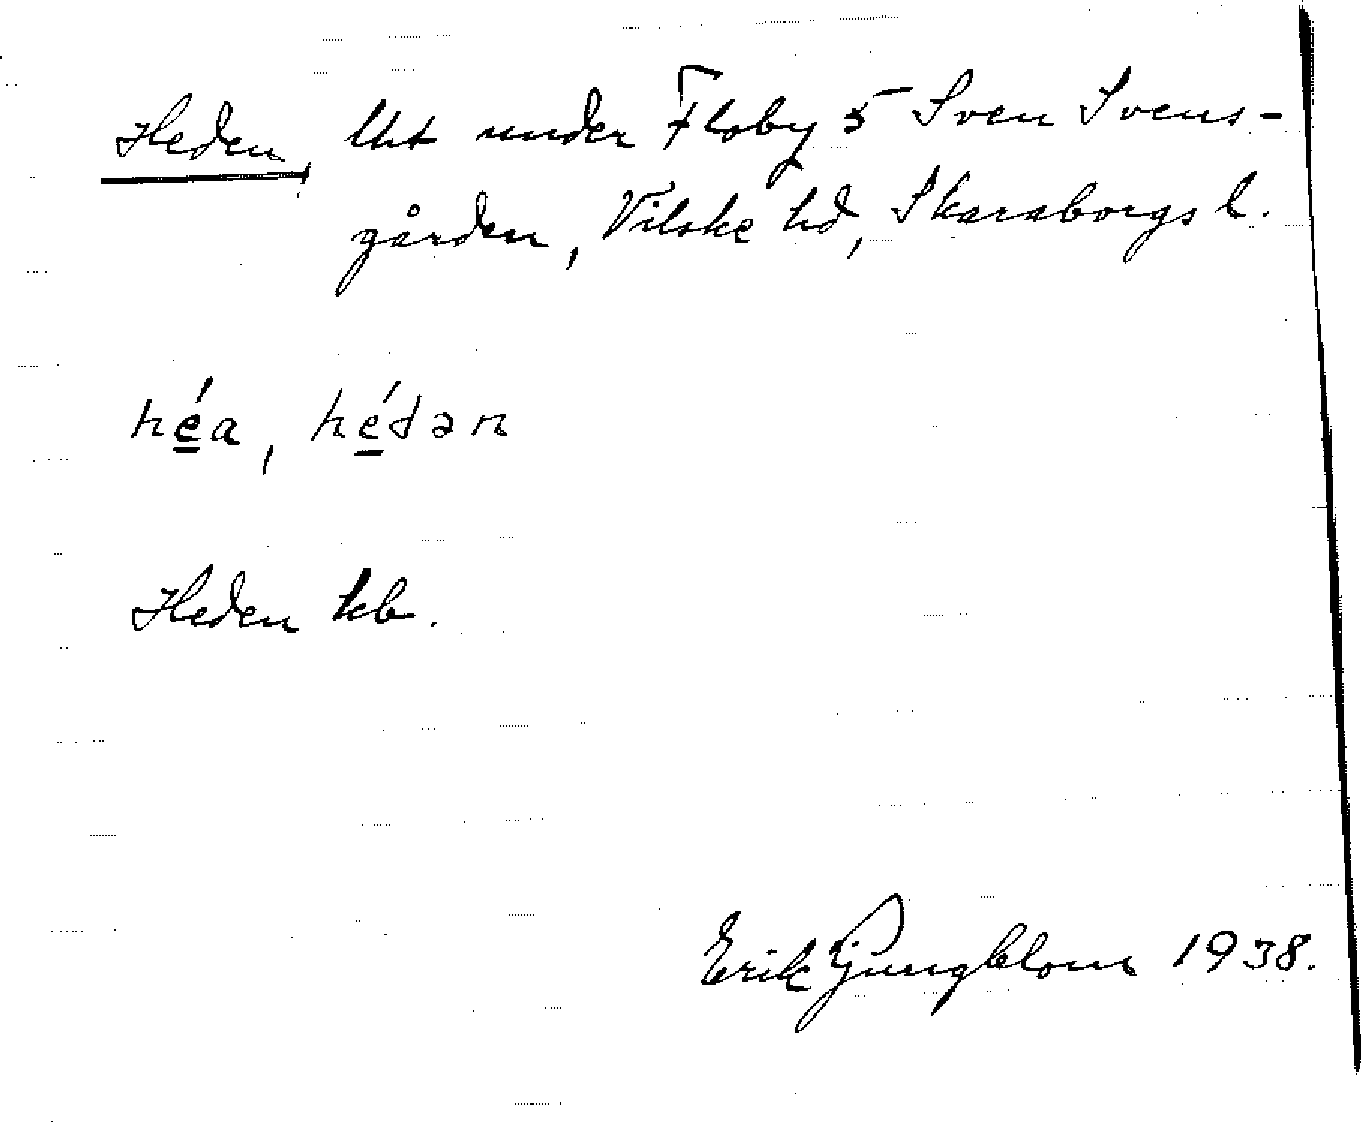 Heden, lht under Floby 5 Sven Svens-
gården, Vilske hd, Skaraborgs l.
hé̲a, hé̲dən
Heden kb.
Erik Ljungblom 1938.